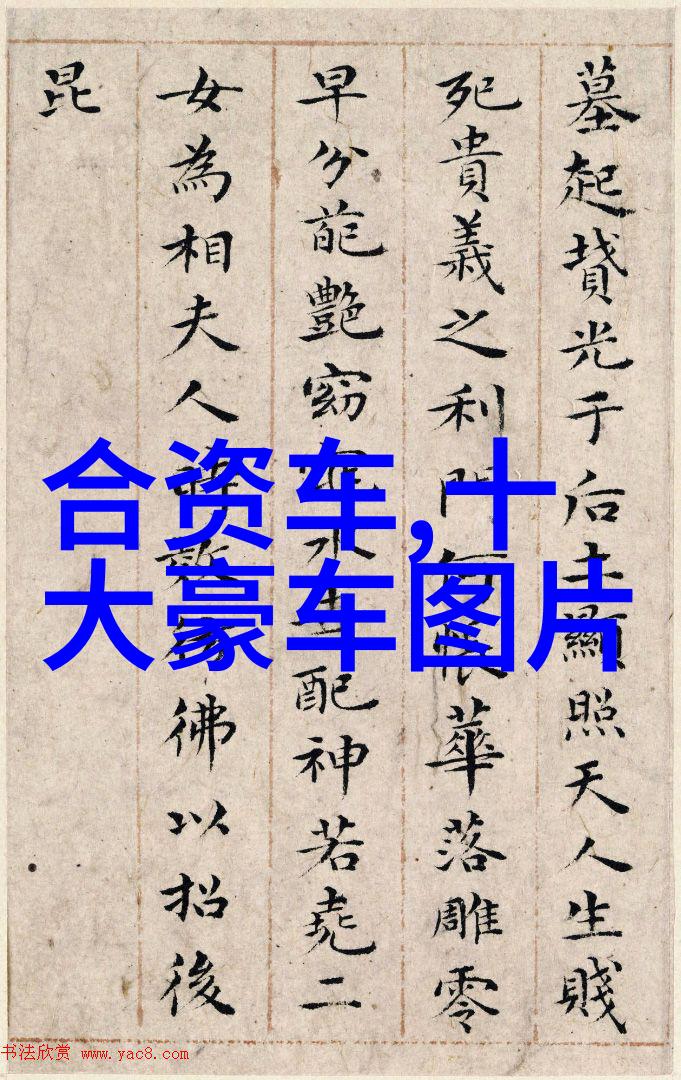 墓起墳光于后土顯照天人生賤
死貴義之利門華落雕零
早分葩艷窈配神若堯二
女為相夫人彿以招後
昆
合资车,十
大豪车图片
书法欣赏 www.yac8.com